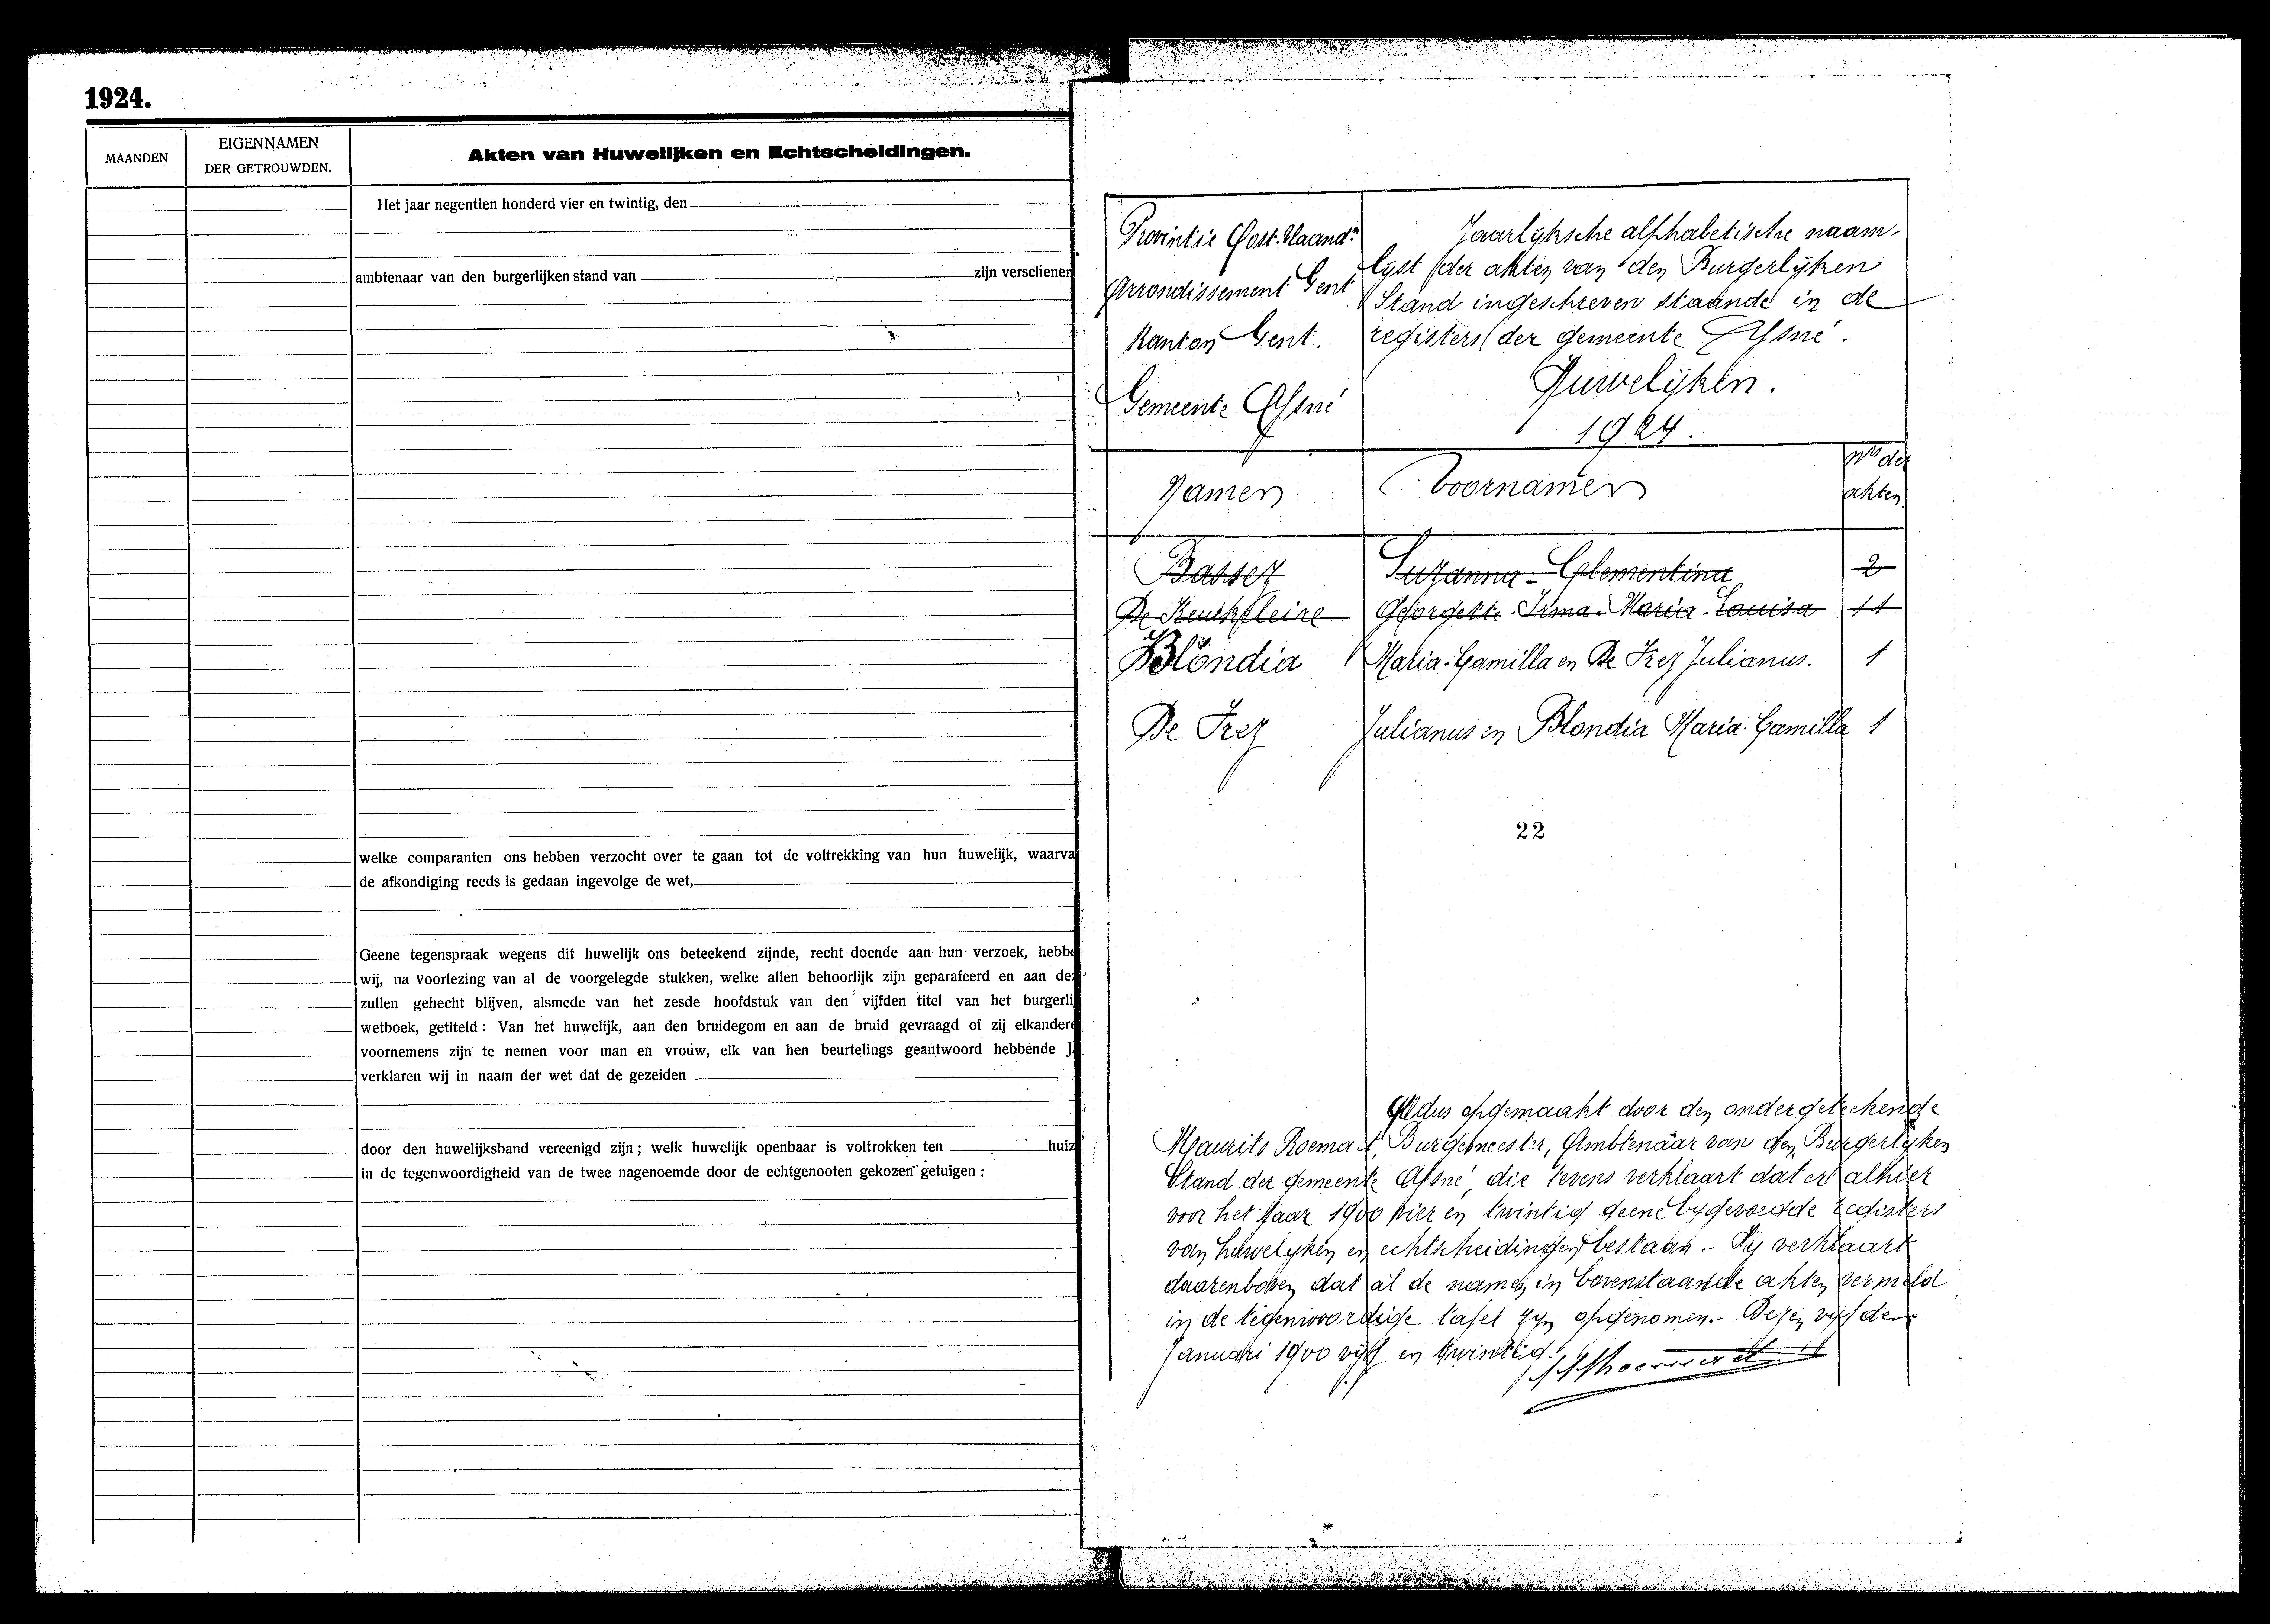 1924.
MAANDEN
EIGENNAMEN
DER GETROUWDEN.
Akten van Huwelijken en Echtscheidingen.
Het jaar negentien honderd vier en twintig, den
ambtenaar van den burgerlijken stand van zijn verschenen
welke comparanten ons hebben verzocht over te gaan tot de voltrekking van hun huwelijk, waarva
de afkondiging reeds is gedaan ingevolge de wet,
Geene tegenspraak wegens dit huwelijk ons beteekend zijnde, recht doende aan hun verzoek, hebbe
wij, na voorlezing van al de voorgelegde stukken, welke allen behoorlijk zijn geparafeerd en aan de
zullen gehecht blijven, alsmede van het zesde hoofdstuk van den vijfden titel van het burgerlij
wetboek, getiteld : Van het huwelijk, aan den bruidegom en aan de bruid gevraagd of zij elkandere
voornemens zijn te nemen voor man en vrouw, elk van hen beurtelings geantwoord hebbende J
verklaren wij in naam der wet dat de gezeiden
door den huwelijksband vereenigd zijn ; welk huwelijk openbaar is voltrokken ten huiz
in de tegenwoordigheid van de twee nagenoemde door de echtgenooten gekozen getuigen :
Provintie Oost-Vlaand.n
Arrondissement Gent
Kanton Gent.
Gemeente Afsné
Jaarlyksche alphabetische naam-
lyst der akten van den Burgerlyken
Stand ingeschreven staande in de
registers der gemeente Afsné.
Huwelyken.
1924.
Namen Voornamen Nrs der akten
Bassez Suzanna-Clementina 2
De Keukeleire Georgette-Irma-Maria-Louisa 11
Blondia Maria-Camilla en De Frez Julianus. 1
De Frez Julianus en Blondia Maria-Camilla 1
22
Aldus opgemaakt door den ondergeteekende
Maurits Roemaet, Burgemeester, Ambtenaar van den Burgerlyken
Stand der gemeente Afsné, die tevens verklaart dat er alhier
voor het jaar 1900 vier en twintig geene bygevoegde registers
van huwelyken en echtscheidingen bestaan.- Hy verklaart
daarenboven dat al de namen in bovenstaande akten vermeld
in de tegenwoordige tafel zyn opgenomen.- Dezen vyfden
Januari 1900 vyf en twintig.